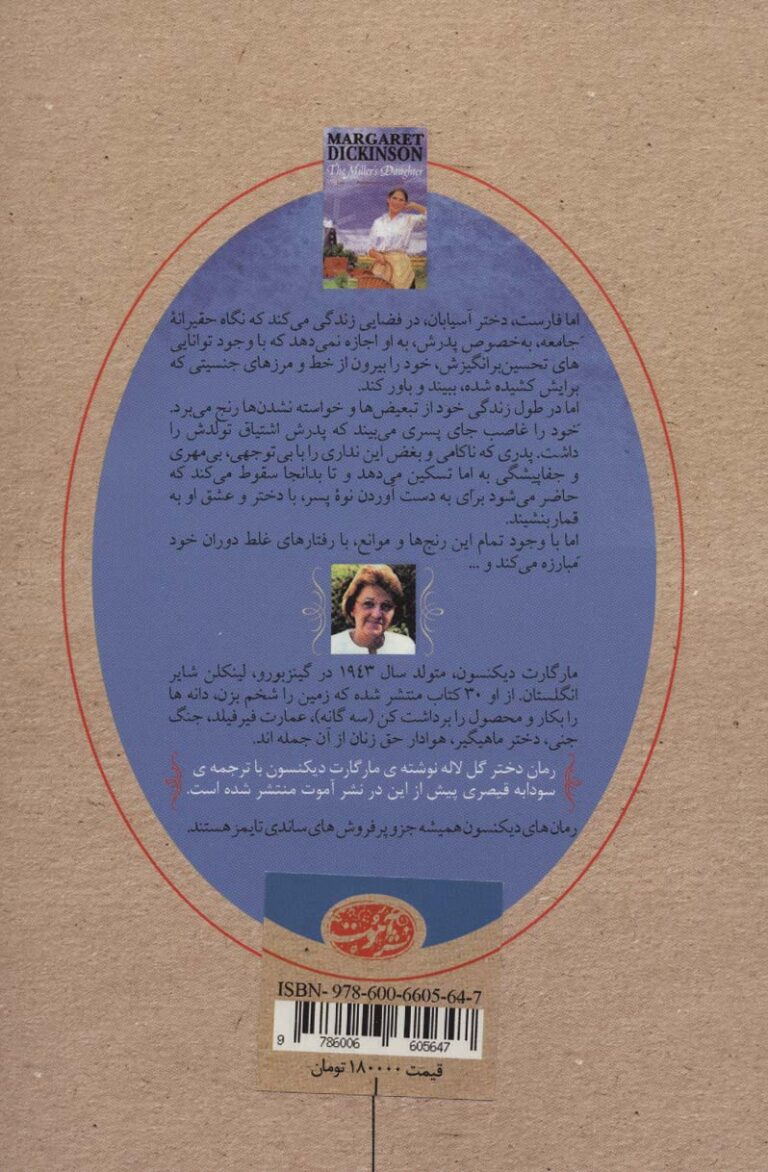 MARGARET
DICKINSON
The Miller's Daughter
اما فارست، دختر آسیابان، در فضایی زندگی می‌کند که نگاه حقیرانهٔ
جامعه، به‌خصوص پدرش، به او اجازه نمی‌دهد که با وجود توانایی
های تحسین‌برانگیزش، خود را بیرون از خط و مرزهای جنسیتی که
برایش کشیده شده، ببیند و باور کند.
اما در طول زندگی خود از تبعیض‌ها و خواسته نشدن‌ها رنج می‌برد.
خود را غاصب جای پسری می‌بیند که پدرش اشتیاق تولدش را
داشت. پدری که ناکامی و بغض این نداری را با بی‌توجهی، بی‌مهری
و جفاپیشگی به اما تسکین می‌دهد و تا بدانجا سقوط می‌کند که
حاضر می‌شود برای به دست آوردن نوهٔ پسر، با دختر و عشق او به
قمار بنشیند.
اما با وجود تمام این رنج‌ها و موانع، با رفتارهای غلط دوران خود
مبارزه می‌کند و ...
مارگارت دیکنسون، متولد سال ۱۹۴۳ در گینزبورو، لینکلن شایر
انگلستان. از او ۳۰ کتاب منتشر شده که زمین را شخم بزن، دانه ها
را بکار و محصول را برداشت کن (سه گانه)، عمارت فیرفیلد، جنگ
جنی، دختر ماهیگیر، هوادار حق زنان از آن جمله اند.
رمان دختر گل لاله نوشته ی مارگارت دیکنسون با ترجمه ی
سودابه قیصری پیش از این در نشر آموت منتشر شده است.
رمان های دیکنسون همیشه جزو پرفروش های ساندی تایمز هستند.
نشر آموت
ISBN- 978-600-6605-64-7
9 786006 605647
قیمت ۱۸۰۰۰۰ تومان